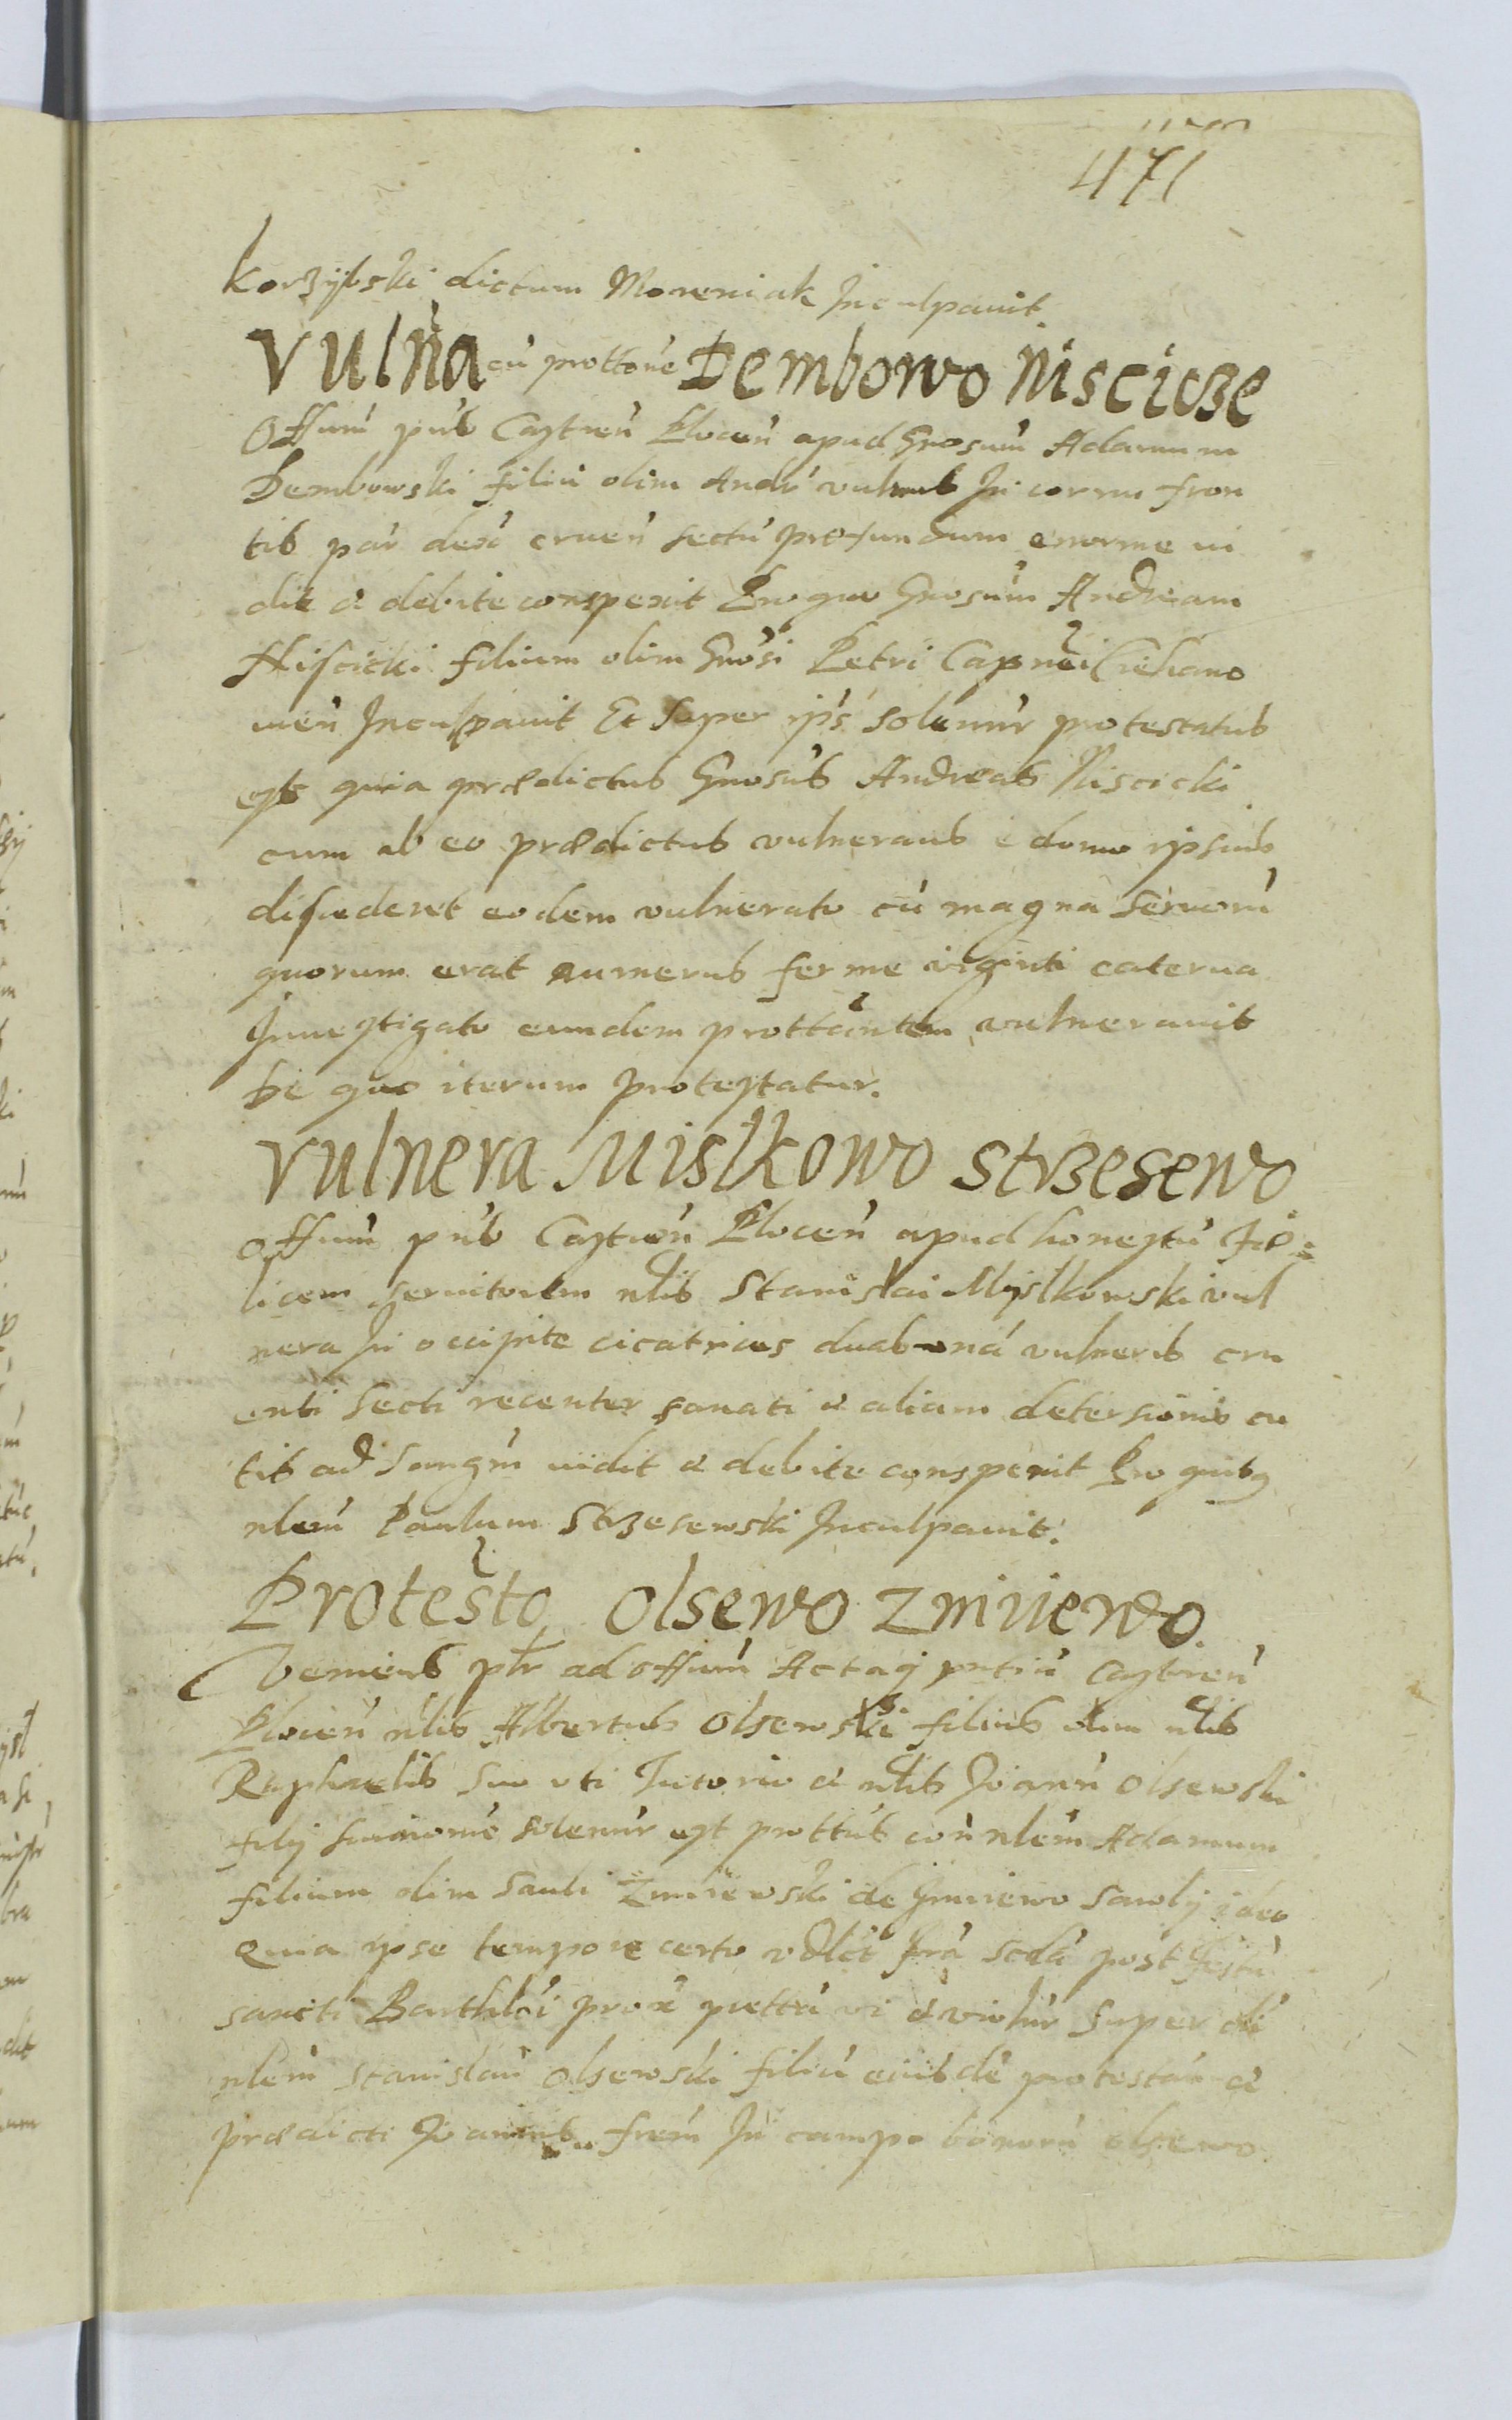 471
Korzÿbski dictum Moreniak Inculpauit.
Vulńa cú prottońe Dembowo Niscicze
Offium pńb Castreń Plocen apud Gnosum Adamum
Dembowski filiú olim Andr vulnus In cornu fron
tis par dex cruen sectú profundum enorme vi
dit et debite conspexit Pro quo Gnosum Andream
Niscicki filium olim Gnosi Petri Capnei Ciehano
uień Inculpauit Et super ips solenńr protestatus
est quia prædictus Gnosus Andreas Niscicki
cum ab eo prædictus vulneraus e domo ipsius
discederet eodem vulnerato cú magna seruorú
quorum erat numerus ferme viginti caterua
Inuestigato eundem prottántem vulnerauit
De quo iterum protestatur.
Vulnera Mislkowo Strzesewo
Offium pńb Castreń Plocen apud honestú
licem seruitorem nlis Stanislai Myslkowski vul
nera In occipite cicatrices duas vná vulneris cru
enti secti recenter sanati et aliam detersionis cu
tis ad sangm vidit et debite conspexit Pro quibq
nlem Paulum Strzesewski Inculpauit.
Protesto Olsewo Zmijewo.
Veniens ptr ad offium Actaq pntiú Castreń
Plocień nlis Albertus Olsewski filius olim nlis
Raphaelis suo vti Tutorio et nlis Joann Olsewski
filij sui nomie solenńr est prottús con nlem Adamum
filium olim Sauli Zmiiewski de Zmiiewo Sawly ideo
Quia ipse tempore certo vdlit fra scda post festú
sancti Barthlei prox prettú vi et violńr super
nlem Stanislaú Olsewski filiú eiusdé protestań et
prædicti Joannis frem In campo bonorú Olsewo